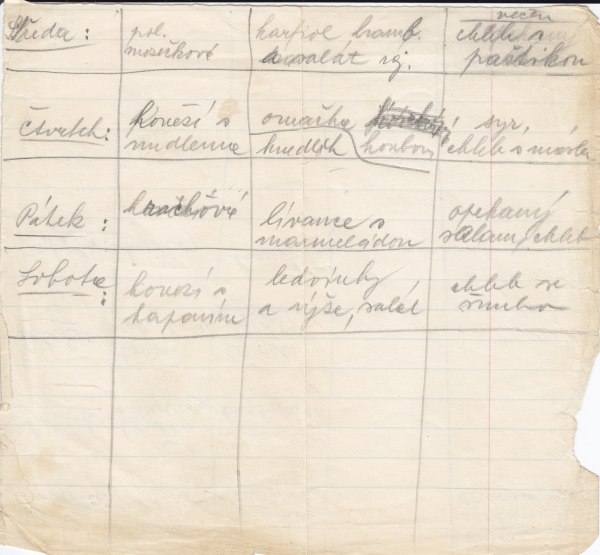 večer
Středa:
pol.
mozečková
karfiol bramb.
salát raj.
chleb s
paštikou
Čtvrtek:
hovězí s
nudlemi
omáčka
knedlík
houbová
syr,
chleb s máslem
Pátek:
hrachová
lívance s
marmeládou
opekaný
salam, chleb
Sobota:
hovězí s
kapáním
ledvinky
a rýže, salát
chleb se
šunkou